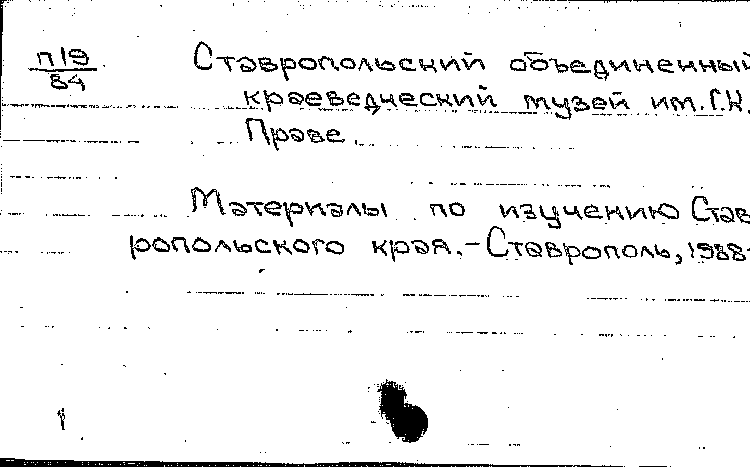 П19
84
Ставропольский объединенный
краеведческий музей им. Г.К.
Праве.
Материалы по изучению Став
ропольского края.-Ставрополь, 1988-